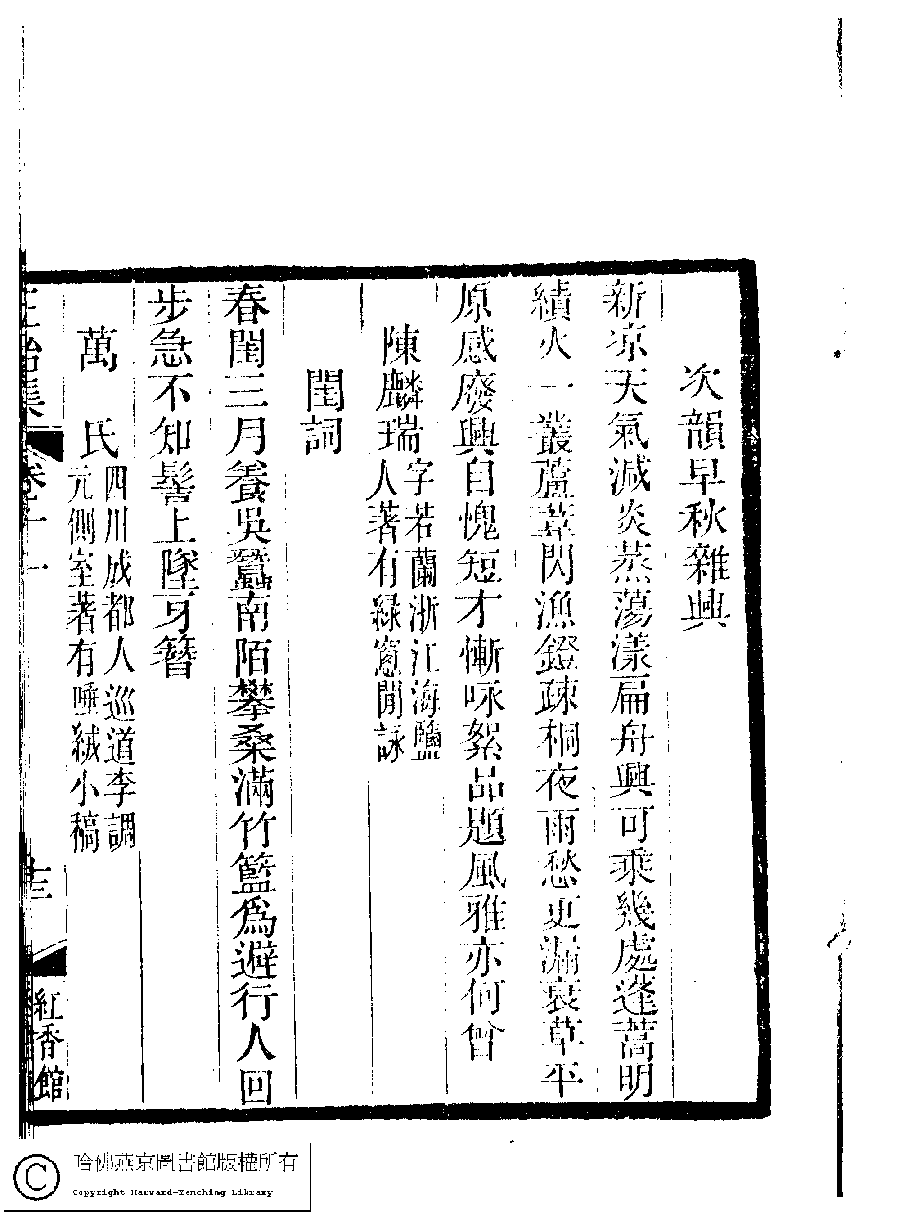 次韻早秋雜興
新凉天氣減炎蒸蕩漾扁舟興可乘幾處蓬蒿明
績火一叢蘆葦閃漁鐙疎桐夜雨愁更漏衰草平
原感廢興自愧短才慚咏絮品題風雅亦何曾
陳麟瑞字若蘭浙江海鹽
人著有綠窻閒詠
閨詞
春閨三月養吳蠶南陌攀桑滿竹籃爲避行人回
步急不知髻上墜牙簪
萬氏四川成都人巡道李調
元側室著有唾絨小稿
正始集
卷十一
十三
紅香館
哈佛燕京圖書館版權所有
Copyright Harvard-Yenching Library